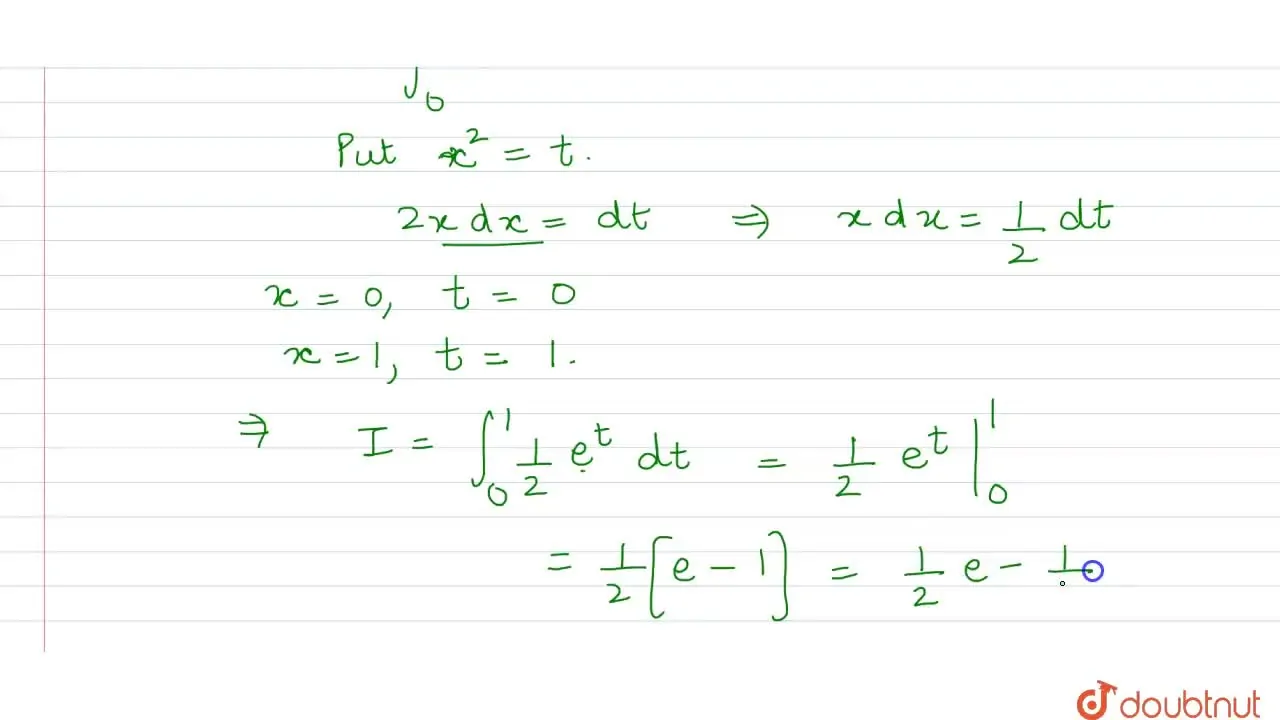 ∫₀
Put x² = t.
2x dx = dt ⇒ x dx = 1/2 dt
x = 0, t = 0
x = 1, t = 1.
⇒ I = ∫₀¹ 1/2 eᵗ dt = 1/2 eᵗ |₀¹
= 1/2 [e − 1] = 1/2 e − 1/
doubtnut